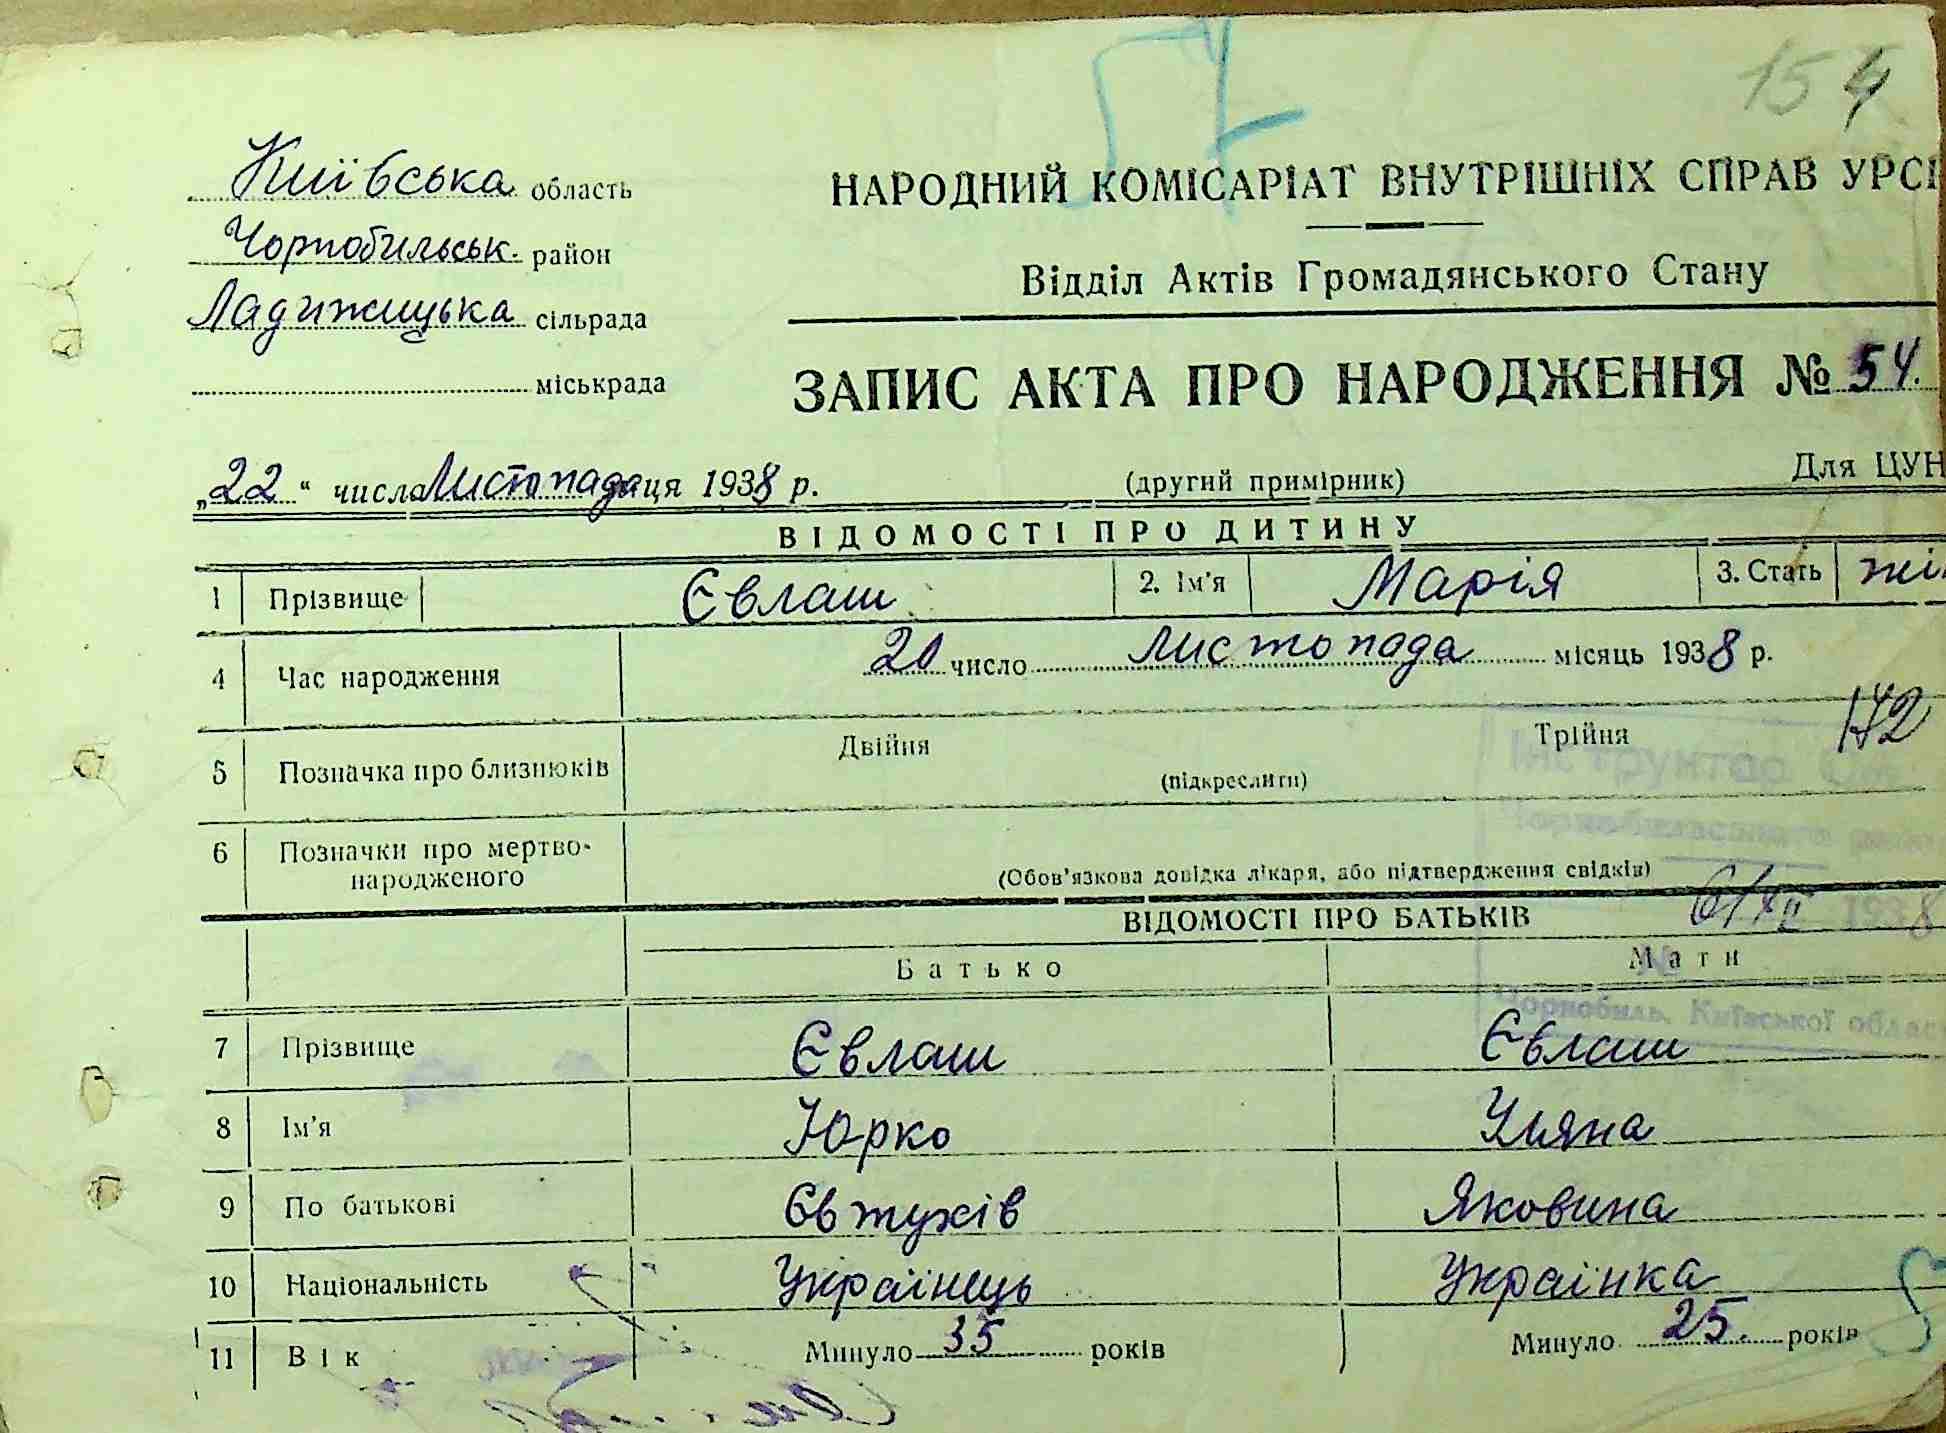 57
154
Київська область
Чорнобильськ. район
Ладижицька сільрада
міськрада
НАРОДНИЙ КОМІСАРІАТ ВНУТРІШНІХ СПРАВ УРСР
Відділ Актів Громадянського Стану
ЗАПИС АКТА ПРО НАРОДЖЕННЯ № 54.
„22“ числа Листопада ця 1938 р.
(другий примірник)
Для ЦУН
ВІДОМОСТІ ПРО ДИТИНУ
1 Прізвище Євлаш 2. Ім'я Марія 3. Стать жін
4 Час народження 20 число Листопада місяць 1938 р.
172
5 Позначка про близнюків Двійня Трійня
(підкреслити)
Інструктор
Чорнобильського
6 Позначки про мертво-
народженого
(Обов'язкова довідка лікаря, або підтвердження свідків)
ВІДОМОСТІ ПРО БАТЬКІВ
6/XII 1938
Батько Мати
№
Чорнобиль, Київської област
7 Прізвище Євлаш Євлаш
8 Ім'я Юрко Уляна
9 По батькові Євтухів Яковина
10 Національність Українець Українка
11 Вік Минуло 35 років Минуло 25. років